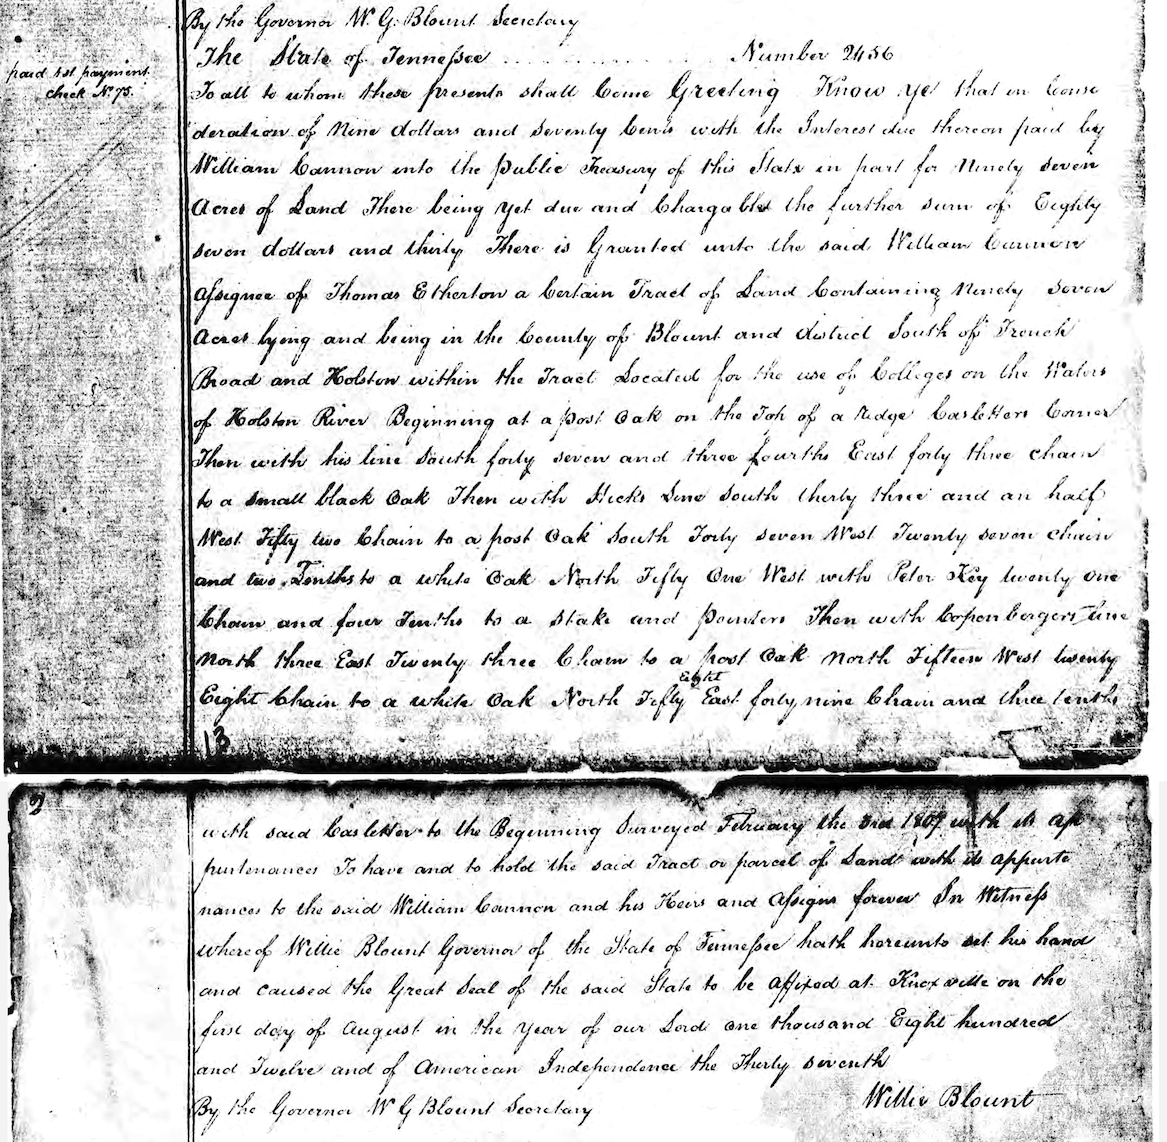 By the Governor W. G. Blount Secretary
The State of Tennessee . . . . . . . . . . . . . Number 2456
paid 1st payment
check No 75.
To all to whom these presents shall Come Greeting Know Ye that in Consi
deration of Nine dollars and Seventy Cents with the Interest due thereon paid by
William Cannon into the public Treasury of this State in part for Ninety seven
Acres of Land There being yet due and Chargable the further sum of Eighty
seven dollars and thirty There is Granted unto the said William Cannon
Assignee of Thomas Etherton a Certain Tract of Land Containing Ninety seven
Acres lying and being in the County of Blount and district South of French
Broad and Holston within the Tract Located for the use of Colleges on the Waters
of Holston River Beginning at a post Oak on the Top of a Ridge Casletters Corner
Then with his line South forty seven and three fourths East forty three chain
to a small black Oak Then with Hicks Line South thirty three and an half
West Fifty two Chain to a post Oak South Forty seven West Twenty seven chain
and two Tenths to a white Oak North Fifty One West with Peter Key twenty one
Chain and four Tenths to a Stake and pointers Then with Copenbergers line
North three East Twenty three Chain to a post Oak North Fifteen West twenty
Eight Chain to a white Oak North Fifty Eight East forty nine Chain and three tenths
13
2
with said Casletter to the Beginning Surveyed February the 3rd 1809 with its ap
purtenances To have and to hold the said Tract or parcel of Land with its appurte
nances to the said William Cannon and his Heirs and Assigns forever In Witness
whereof Willie Blount Governor of the State of Tennessee hath hereunto set his hand
and caused the Great Seal of the said State to be affixed at Knoxville on the
first day of August in the Year of our Lord one thousand Eight hundred
and Twelve and of American Independence the Thirty seventh
Willie Blount
By the Governor W G Blount Secretary